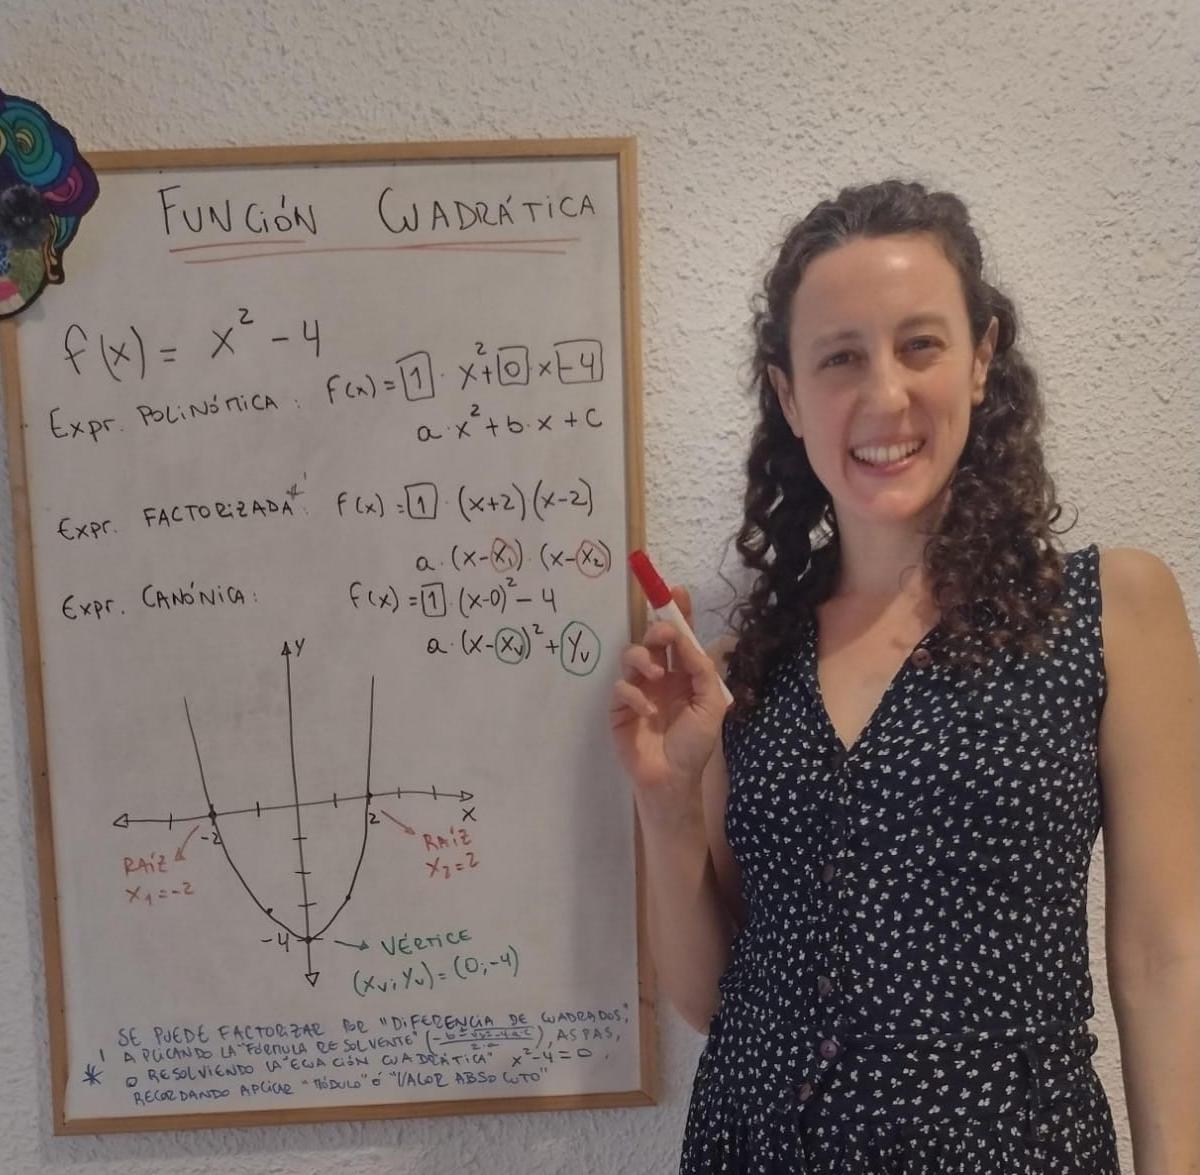 FUNCIÓN CUADRÁTICA
f(x) = x² - 4
Expr. POLINÓMICA: f(x) = 1 · x² + 0 x -4
a · x² + b · x + c
Expr. FACTORIZADA*¹: f(x) = 1 · (x+2) (x-2)
a · (x - x₁) · (x - x₂)
Expr. CANÓNICA: f(x) = 1 · (x-0)² - 4
a · (x - xᵥ)² + yᵥ
y
x
-2
2
RAÍZ
x₁ = -2
RAÍZ
x₂ = 2
-4
VÉRTICE
(xᵥ; yᵥ) = (0; -4)
*¹ SE PUEDE FACTORIZAR POR "DIFERENCIA DE CUADRADOS",
APLICANDO LA "FÓRMULA RESOLVENTE" (-b ± √b²-4·a·c / 2·a), ASPAS,
O RESOLVIENDO LA "ECUACIÓN CUADRÁTICA" x² - 4 = 0,
RECORDANDO APLICAR "MÓDULO" Ó "VALOR ABSOLUTO"